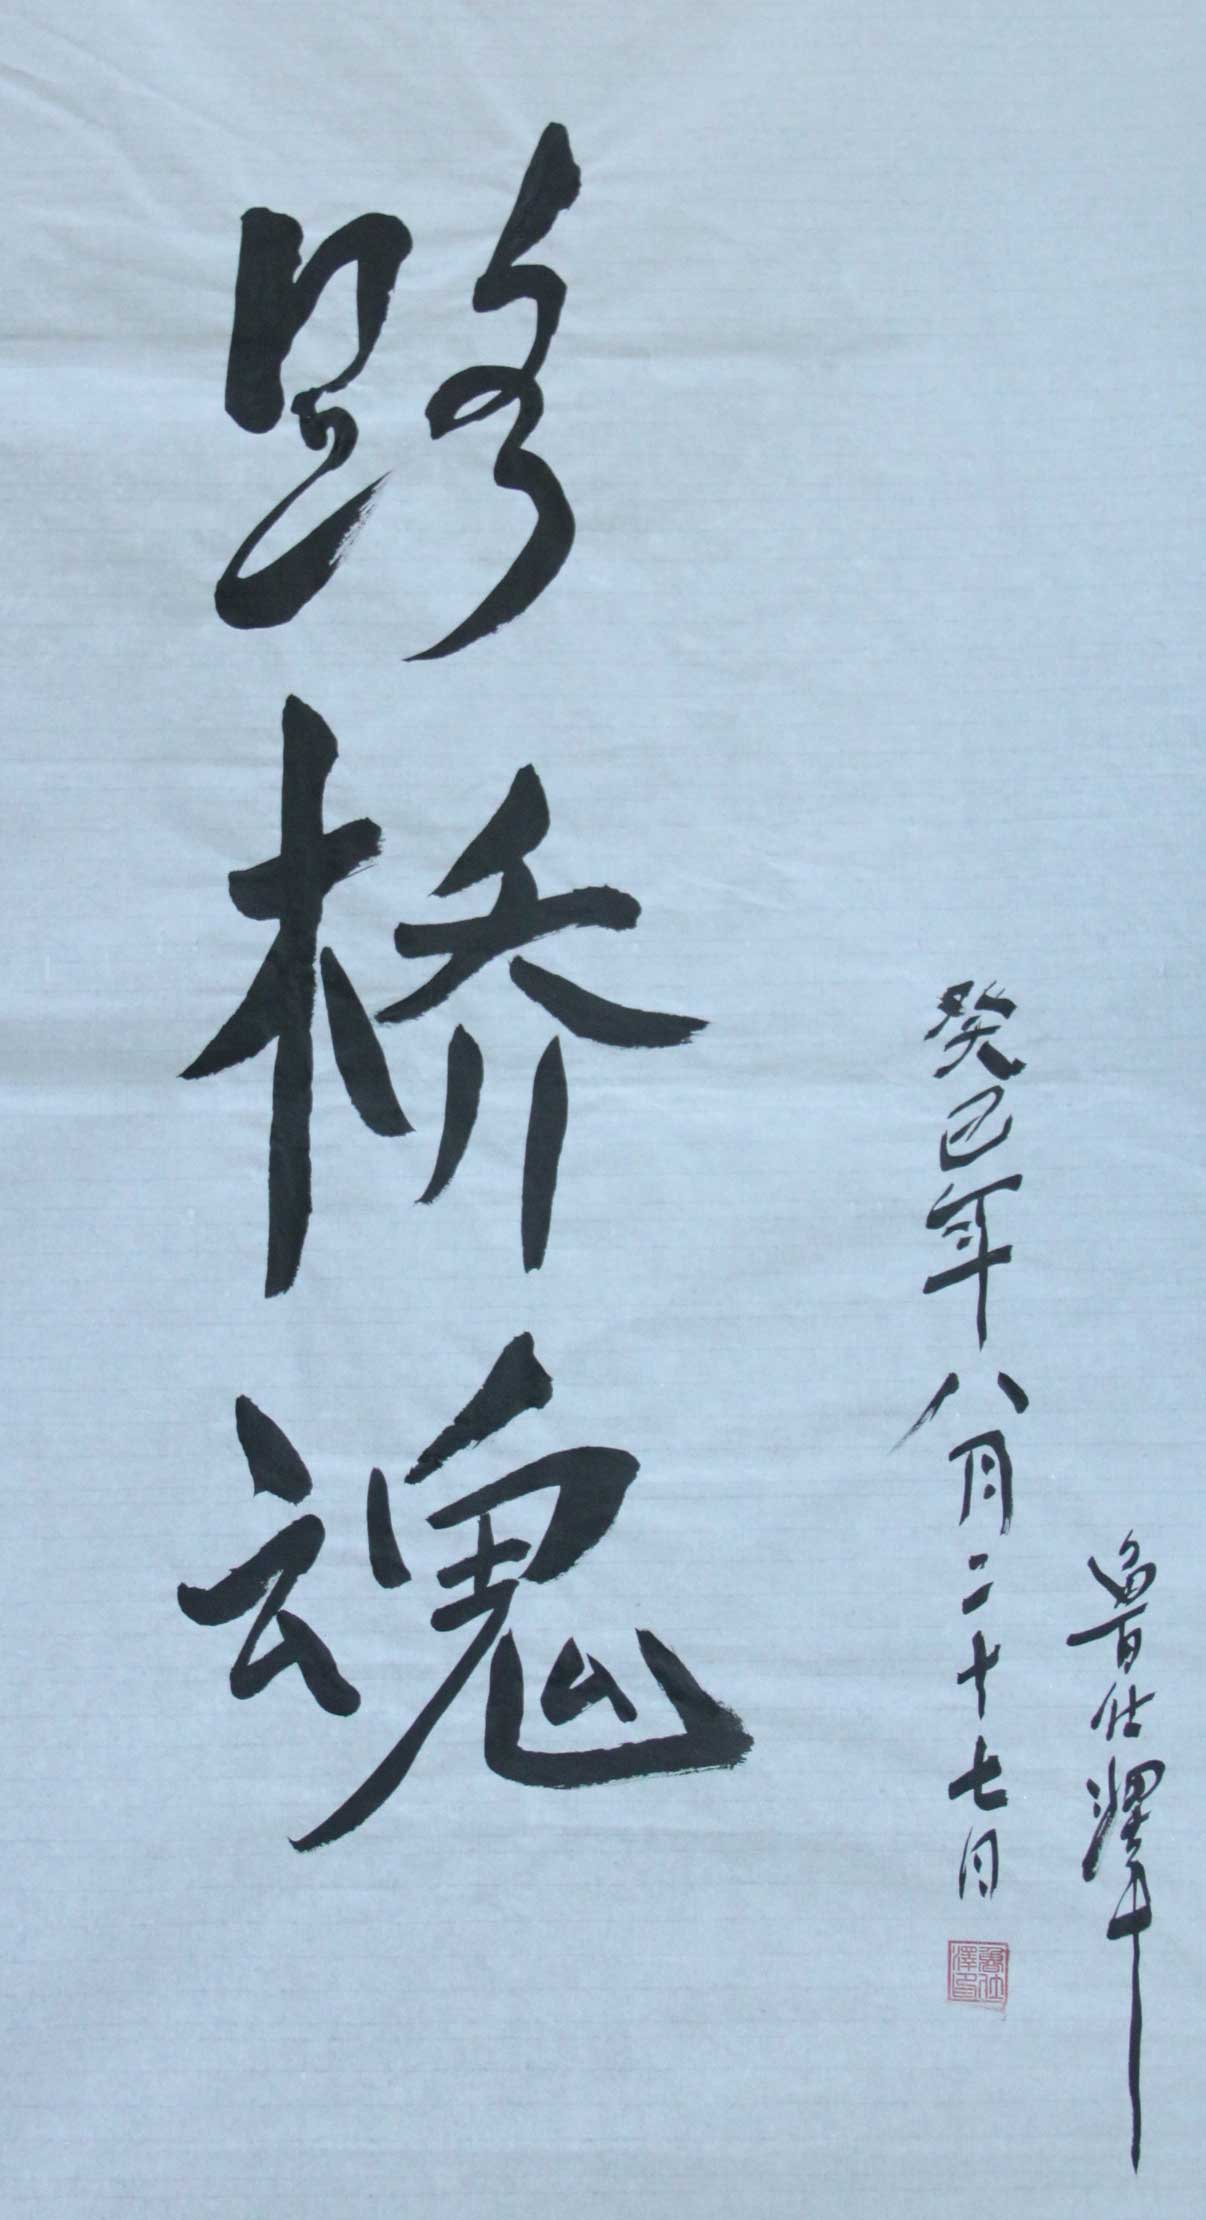 路桥魂
癸巳年八月二十七日
鲁仕澤
魯仕澤印